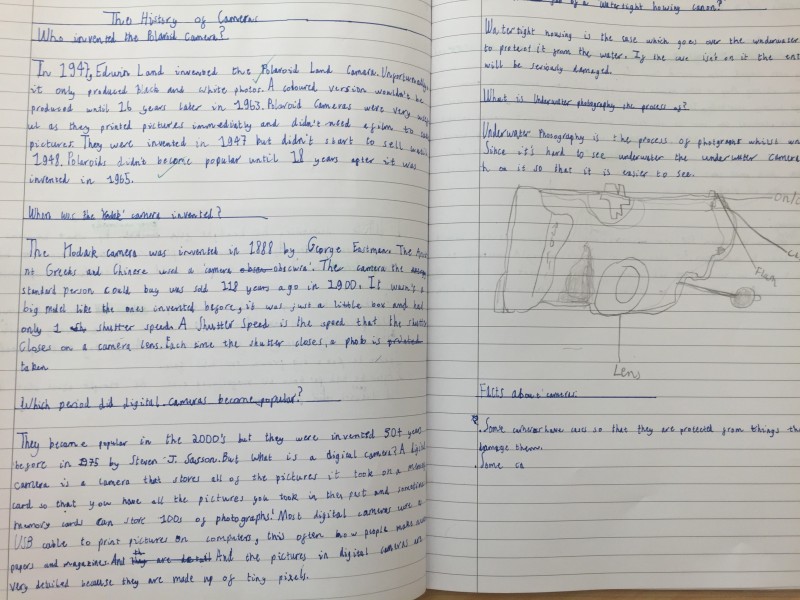 The History of Cameras
Who invented the Polaroid Camera?
In 1947, Edwin Land invented the Polaroid Land Camera. Unfortunately
it only produced black and white photos. A coloured version wouldn't be
produced until 16 years later in 1963. Polaroid Cameras were very
ul as they printed pictures immediatly and didn't need a film to
pictures. They were invented in 1947 but didn't start to sell until
1948. Polaroids didn't become popular until 18 years after it was
invented in 1965.
When was the 'Kodak' camera invented?
The Kodack camera was invented in 1888 by George Eastmann. The
nt Greeks and Chinese used a 'camera obscura'. The camera the
standard person could buy was sold 118 years ago in 1900. It wasn't a
big model like the ones invented before, it was just a little box and had
only 1 shutter speed. A Shutter Speed is the speed that the
closes on a camera lens. Each time the shutter closes, a photo is printed
taken
Which period did digital cameras become popular?
They became popular in the 2000's but they were invented 30+ years
before in 1975 by Steven J. Sasson. But what is a digital camera? A digital
camera is a camera that stores all of the pictures it took on a memory
card so that you have all the pictures you took in the past and sometimes
memory cards can store 100s of photographs! Most digital cameras use a
USB cable to print pictures on computers, this often how people make
papers and magazines. And the pictures in digital cameras are
very detailed because they are made up of tiny pixels.
of a watertight housing canon?
Watertight housing is the case which goes over the underwater
to protect it from the water. If the case isn't on it the
will be seriously damaged.
What is Underwater photography the process of?
Underwater Photography is the process of photographs whilst
Since it's hard to see underwater the underwater camera
h on it so that it is easier to see.
on/o
Flash
Lens
Facts about cameras
Some cameras have cases so that they are protected from things
damage them.
Some ca